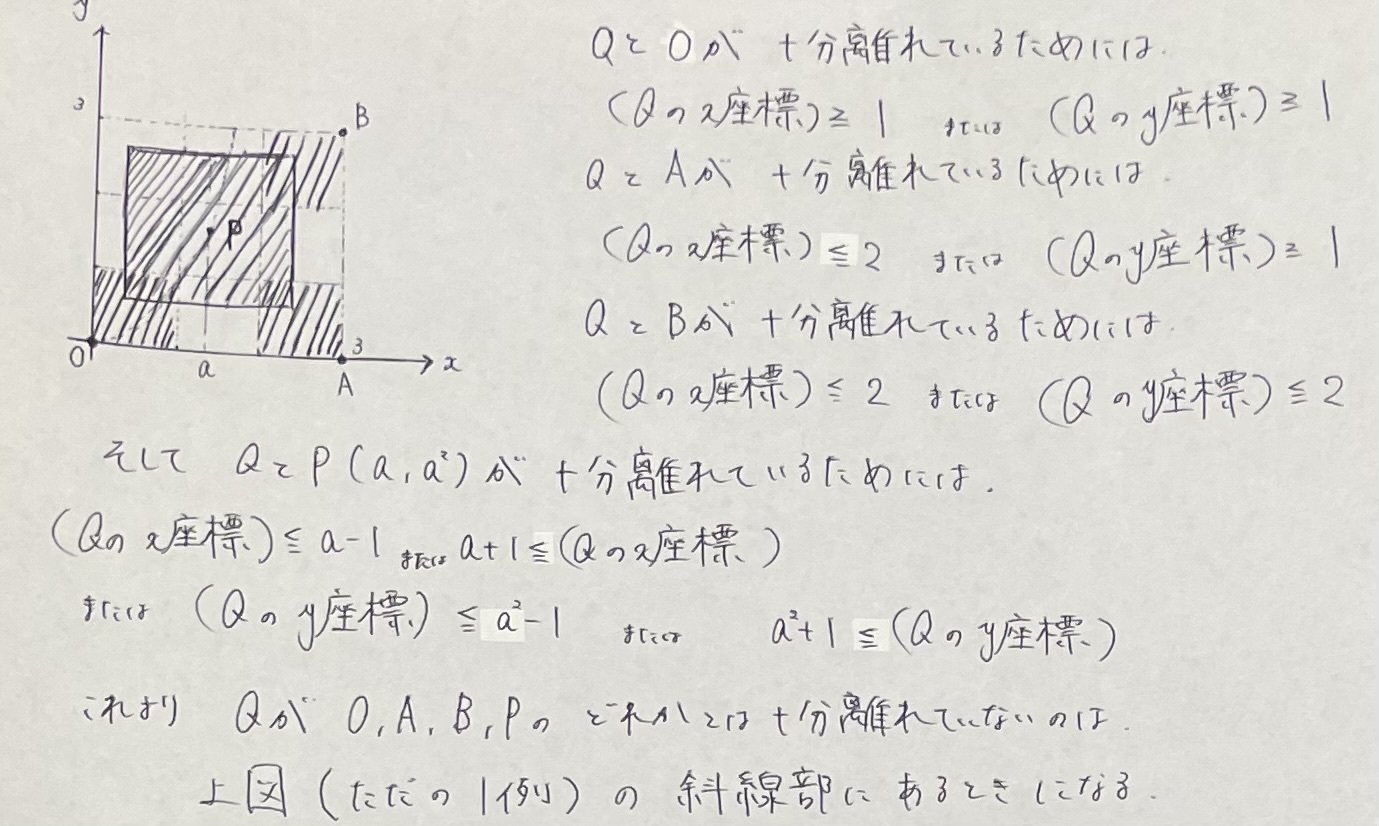 y
3
B
P
O
a
3
A
x
Qと0が 十分離れているためには.
(Qのx座標)≧1 または (Qのy座標)≧1
QとAが 十分離れているためには.
(Qのx座標)≦2 または (Qのy座標)≧1
QとBが 十分離れているためには.
(Qのx座標)≦2 または (Qのy座標)≦2
そして QとP(a,a²)が 十分離れているためには.
(Qのx座標)≦a-1 または a+1≦(Qのx座標)
または (Qのy座標)≦a²-1 または a²+1≦(Qのy座標)
これより Qが O,A,B,Pの どれかとは十分離れていないのは.
上図(ただの1例)の 斜線部にあるときになる.